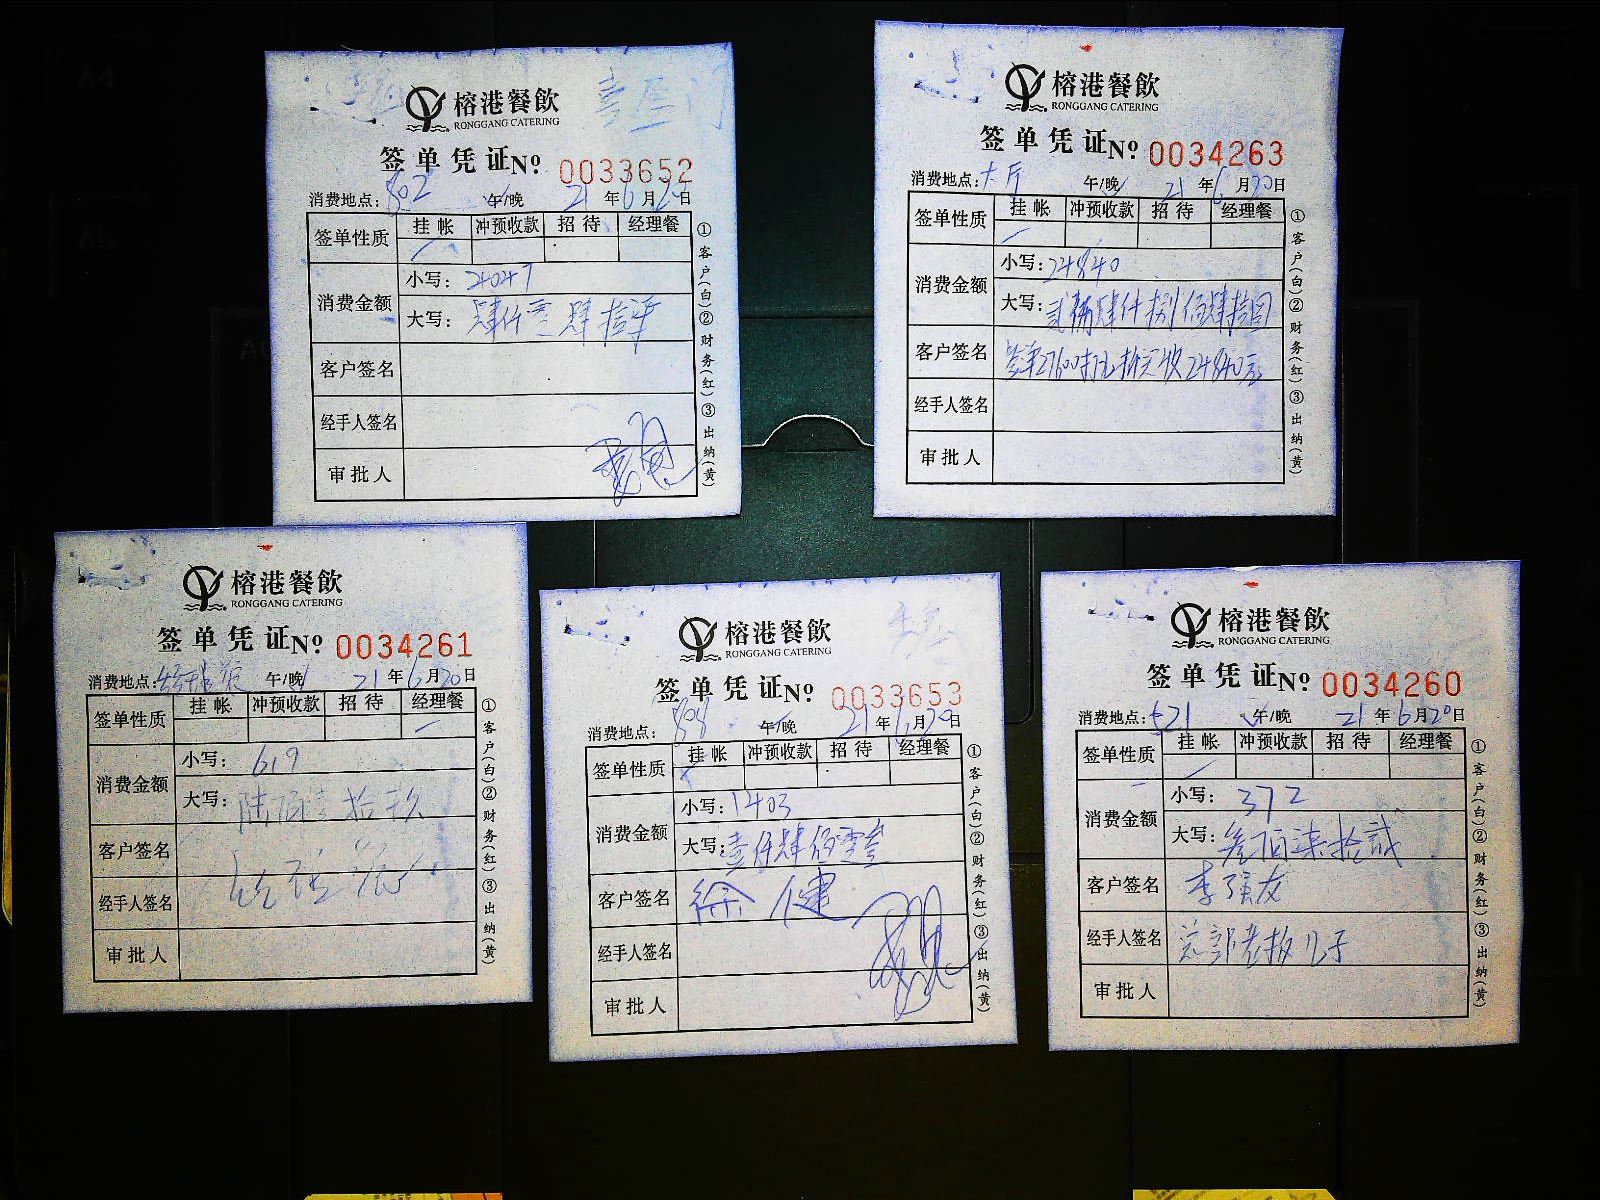 榕港餐飲
RONGGANG CATERING
签单凭证 No: 0033652
消费地点: 802 午/晚 21年6月20日
签单性质 挂帐 冲预收款 招待 经理餐
消费金额 小写:
大写: 肆仟零肆拾
客户签名
经手人签名
审批人
①客户(白)②财务(红)③出纳(黄)
榕港餐飲
RONGGANG CATERING
签单凭证 No: 0034263
消费地点: 大厅 午/晚 21年6月20日
签单性质 挂帐 冲预收款 招待 经理餐
消费金额 小写: 24840
大写: 贰萬肆仟捌佰肆拾
客户签名 27600打九折 收24840元
经手人签名
审批人
①客户(白)②财务(红)③出纳(黄)
榕港餐飲
RONGGANG CATERING
签单凭证 No: 0034261
消费地点: 午/晚 21年6月20日
签单性质 挂帐 冲预收款 招待 经理餐
消费金额 小写: 619
大写: 陆佰壹拾玖
客户签名
经手人签名
审批人
①客户(白)②财务(红)③出纳(黄)
榕港餐飲
RONGGANG CATERING
签单凭证 No: 0033653
消费地点: 808 午/晚 21年6月20日
签单性质 挂帐 冲预收款 招待 经理餐
消费金额 小写: 1403
大写: 壹仟肆佰零叁
客户签名 徐健
经手人签名
审批人
①客户(白)②财务(红)③出纳(黄)
榕港餐飲
RONGGANG CATERING
签单凭证 No: 0034260
消费地点: 521 午/晚 21年6月20日
签单性质 挂帐 冲预收款 招待 经理餐
消费金额 小写: 372
大写: 叁佰柒拾贰
客户签名 李强友
经手人签名 老板儿子
审批人
①客户(白)②财务(红)③出纳(黄)